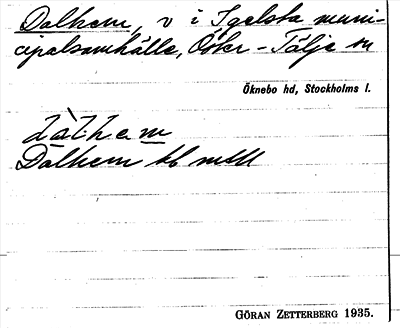 Dalhem, v i Igelsta muni-
cipalsamhälle, Öster-Tälje sn
Öknebo hd, Stockholms l.
dàlhem
Dalhem
GÖRAN ZETTERBERG 1935.